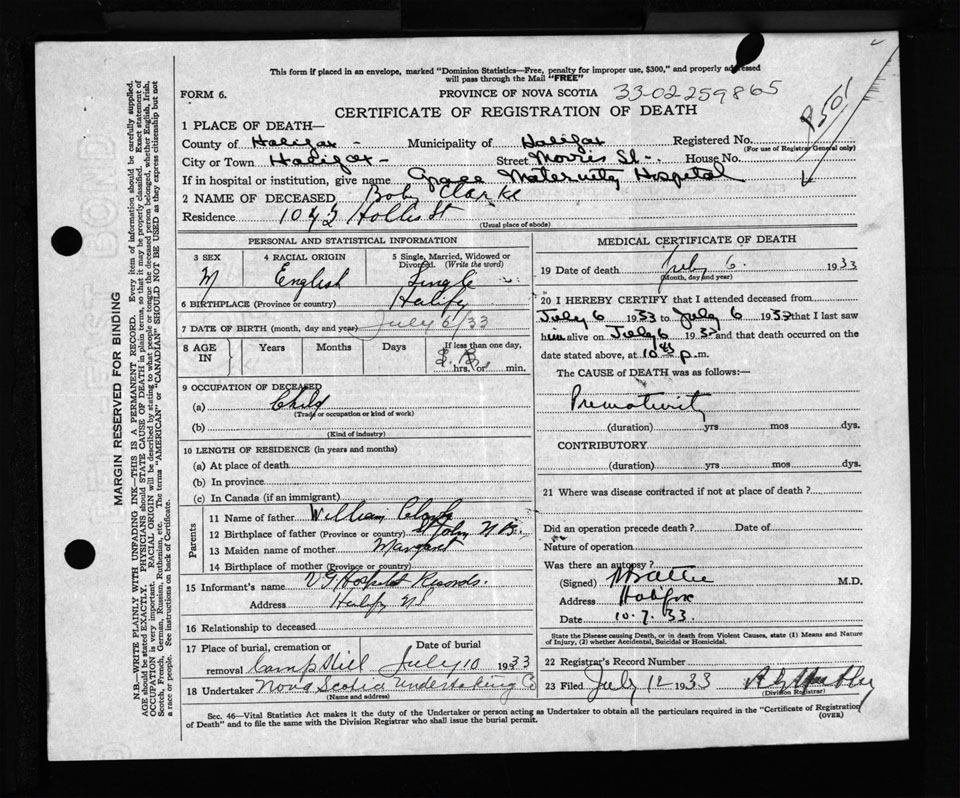 This form if placed in an envelope, marked "Dominion Statistics—Free, penalty for improper use, $300," and properly addressed
will pass through the Mail "FREE"
FORM 6. PROVINCE OF NOVA SCOTIA 33-02-259865
CERTIFICATE OF REGISTRATION OF DEATH
1 PLACE OF DEATH—
County of Halifax Municipality of Halifax Registered No.
(For use of Registrar General only)
City or Town Halifax Street Morris St. House No.
If in hospital or institution, give name Grace Maternity Hospital
2 NAME OF DECEASED Boby Clarke
Residence 1043 Hollis St
(Usual place of abode)
PERSONAL AND STATISTICAL INFORMATION
3 SEX 4 RACIAL ORIGIN 5 Single, Married, Widowed or Divorced. (Write the word)
M English Single
6 BIRTHPLACE (Province or country) Halifx
7 DATE OF BIRTH (month, day and year) July 6/33
8 AGE IN Years Months Days If less than one day,
hrs. or min.
9 OCCUPATION OF DECEASED
(a) Child
(Trade or occupation or kind of work)
(b)
(Kind of industry)
10 LENGTH OF RESIDENCE (in years and months)
(a) At place of death
(b) In province
(c) In Canada (if an immigrant)
Parents
11 Name of father William Clark
12 Birthplace of father (Province or country) St John N.B.
13 Maiden name of mother Margaret
14 Birthplace of mother (Province or country)
15 Informant's name V G Hospital Records.
Address Halifx NS
16 Relationship to deceased
17 Place of burial, cremation or removal Camp Hill Date of burial July 10 1933
18 Undertaker Nova Scotia Undertaking Co
(Name and address)
MEDICAL CERTIFICATE OF DEATH
19 Date of death July 6. 1933
(Month, day and year)
20 I HEREBY CERTIFY that I attended deceased from
July 6 1933 to July 6 1933 that I last saw
him alive on July 6 1933 and that death occurred on the
date stated above, at 10 p.m.
The CAUSE of DEATH was as follows:—
Prematurity
(duration) yrs mos dys.
CONTRIBUTORY
(duration) yrs mos dys.
21 Where was disease contracted if not at place of death?
Did an operation precede death? Date of
Nature of operation
Was there an autopsy?
(Signed) M.D.
Address Halifax
Date 10.7.33.
State the Disease causing Death, or in death from Violent Causes, state (1) Means and Nature
of Injury, (2) whether Accidental, Suicidal or Homicidal.
22 Registrar's Record Number
23 Filed July 12 1933
(Division Registrar)
Sec. 46—Vital Statistics Act makes it the duty of the Undertaker or person acting as Undertaker to obtain all the particulars required in the "Certificate of Registration
of Death" and to file the same with the Division Registrar who shall issue the burial permit.
(OVER)
MARGIN RESERVED FOR BINDING
N.B.—WRITE PLAINLY WITH UNFADING INK—THIS IS A PERMANENT RECORD. Every item of information should be carefully supplied.
AGE should be stated EXACTLY. PHYSICIANS should STATE CAUSE OF DEATH in plain terms, so that it may be properly classified. Exact statement of
OCCUPATION is very important. RACIAL ORIGIN will be described by stating to what people or tongue the deceased person belonged, whether English, Irish,
Scotch, French, German, Russian, Ruthenian, etc. The terms "AMERICAN" or "CANADIAN" SHOULD NOT BE USED as they express citizenship but not
a race or people. See instructions on back of Certificate.